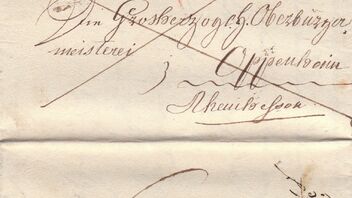 Die Grosherzogch. Oberbürger
meisterei
Oppenheim
Rheinhessen